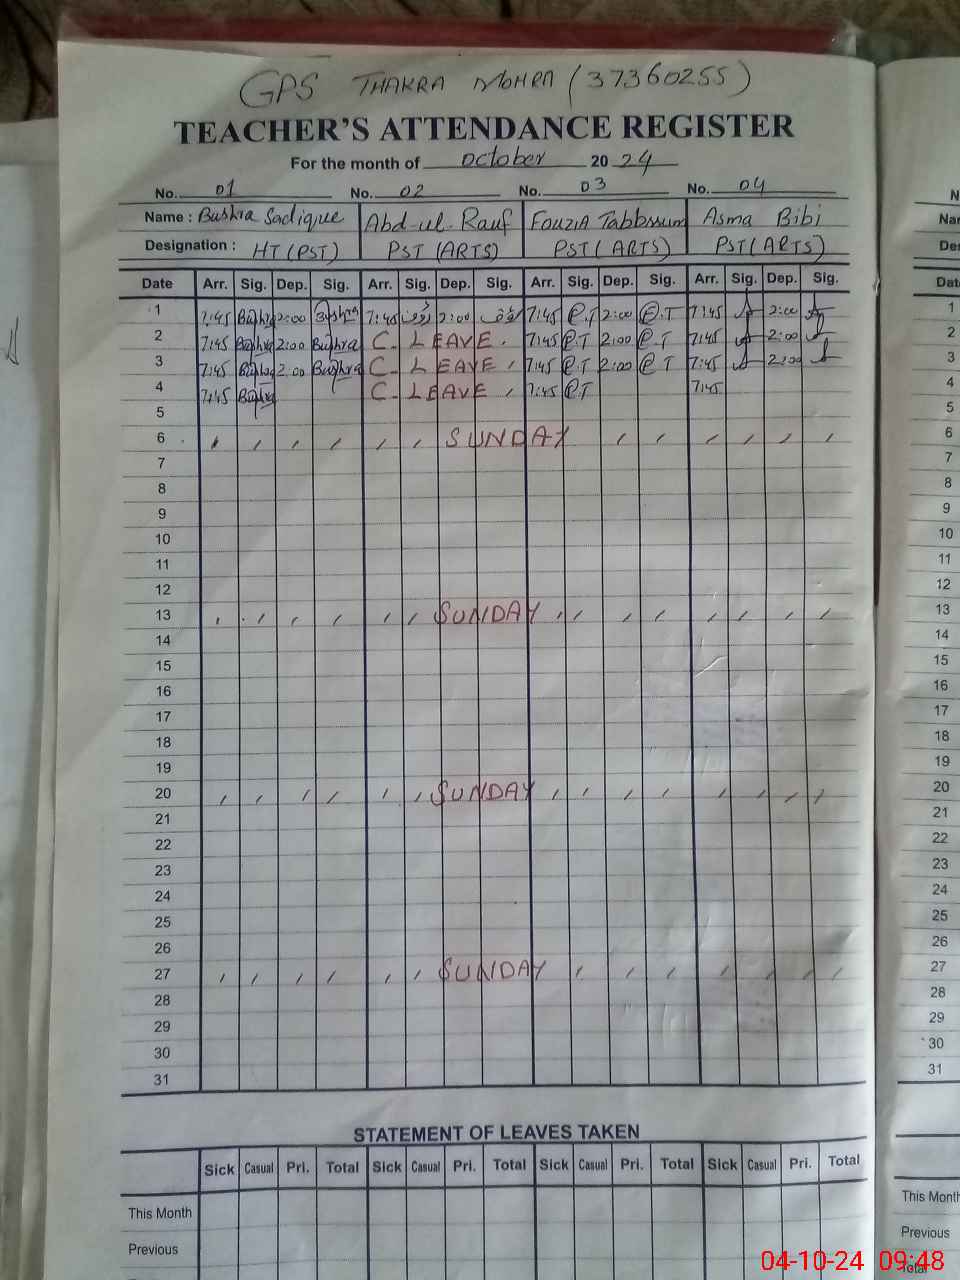 GPS THAKRA MOHRA (37360255)
TEACHER'S ATTENDANCE REGISTER
For the month of October 2024
No. 01 No. 02 No. 03 No. 04
Name : Bushra Sadique Abd-ul-Rauf Fouzia Tabbssum Asma Bibi
Designation : HT (PST) PST (ARTS) PST (ARTS) PST (ARTS)
Date Arr. Sig. Dep. Sig. Arr. Sig. Dep. Sig. Arr. Sig. Dep. Sig. Arr. Sig. Dep. Sig.
1 7:45 Bushra 2:00 Bushra 7:45 رؤف 2:00 رؤف 7:45 F.T 2:00 F.T 7:45 2:00
2 7:45 Bushra 2:00 Bushra C. LEAVE. 7:45 F.T 2:00 F.T 7:45 2:00
3 7:45 Bushra 2:00 Bushra C. LEAVE, 7:45 F.T 2:00 F.T 7:45 2:00
4 7:45 Bushra C. LEAVE, 7:45 F.T 7:45
5
6 SUNDAY
7
8
9
10
11
12
13 SUNDAY
14
15
16
17
18
19
20 SUNDAY
21
22
23
24
25
26
27 SUNDAY
28
29
30
31
STATEMENT OF LEAVES TAKEN
Sick Casual Pri. Total Sick Casual Pri. Total Sick Casual Pri. Total Sick Casual Pri. Total
This Month
Previous
1
2
3
4
5
6
7
8
9
10
11
12
13
14
15
16
17
18
19
20
21
22
23
24
25
26
27
28
29
30
31
This Month
Previous
Total
04-10-24 09:48